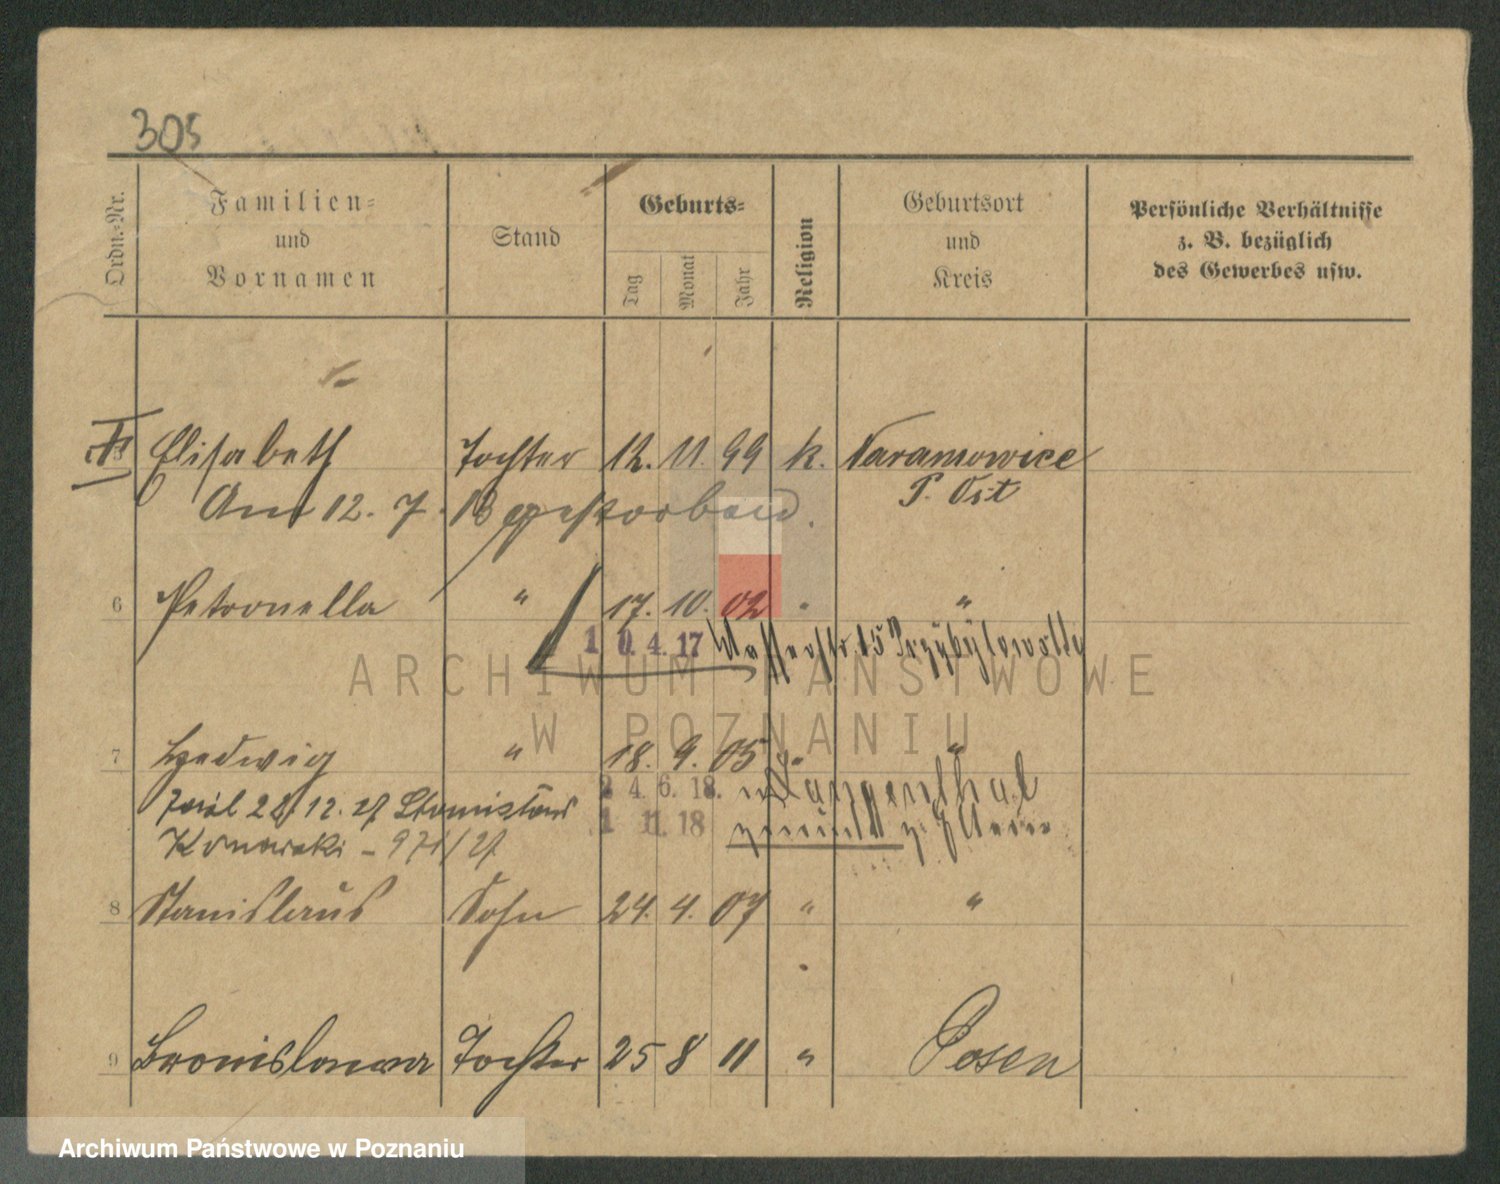 305
Ordn.-Nr.
Familien-
und
Vornamen
Stand
Geburts-
Tag
Monat
Jahr
Religion
Geburtsort
und
Kreis
Persönliche Verhältnisse
z. B. bezüglich
des Gewerbes usw.
Elisabeth Tochter 12. 11. 99 k. Naramowice
Am 12. 7. 18 gestorben. P. Ost
6 Petronella " 17. 10. 02 " "
1 0. 4. 17 Wasserstr. 15
ARCHIWUM PAŃSTWOWE
W POZNANIU
7 Hedwig " 18. 9. 05 " "
2 4. 6. 18. n Langenthal
28/12. 27 Stanislaus
1 11. 18
Konarski - 971/27
8 Stanislaus Sohn 24. 4. 07 " "
9 Bronislawa Tochter 25 8 11 " Posen
Archiwum Państwowe w Poznaniu